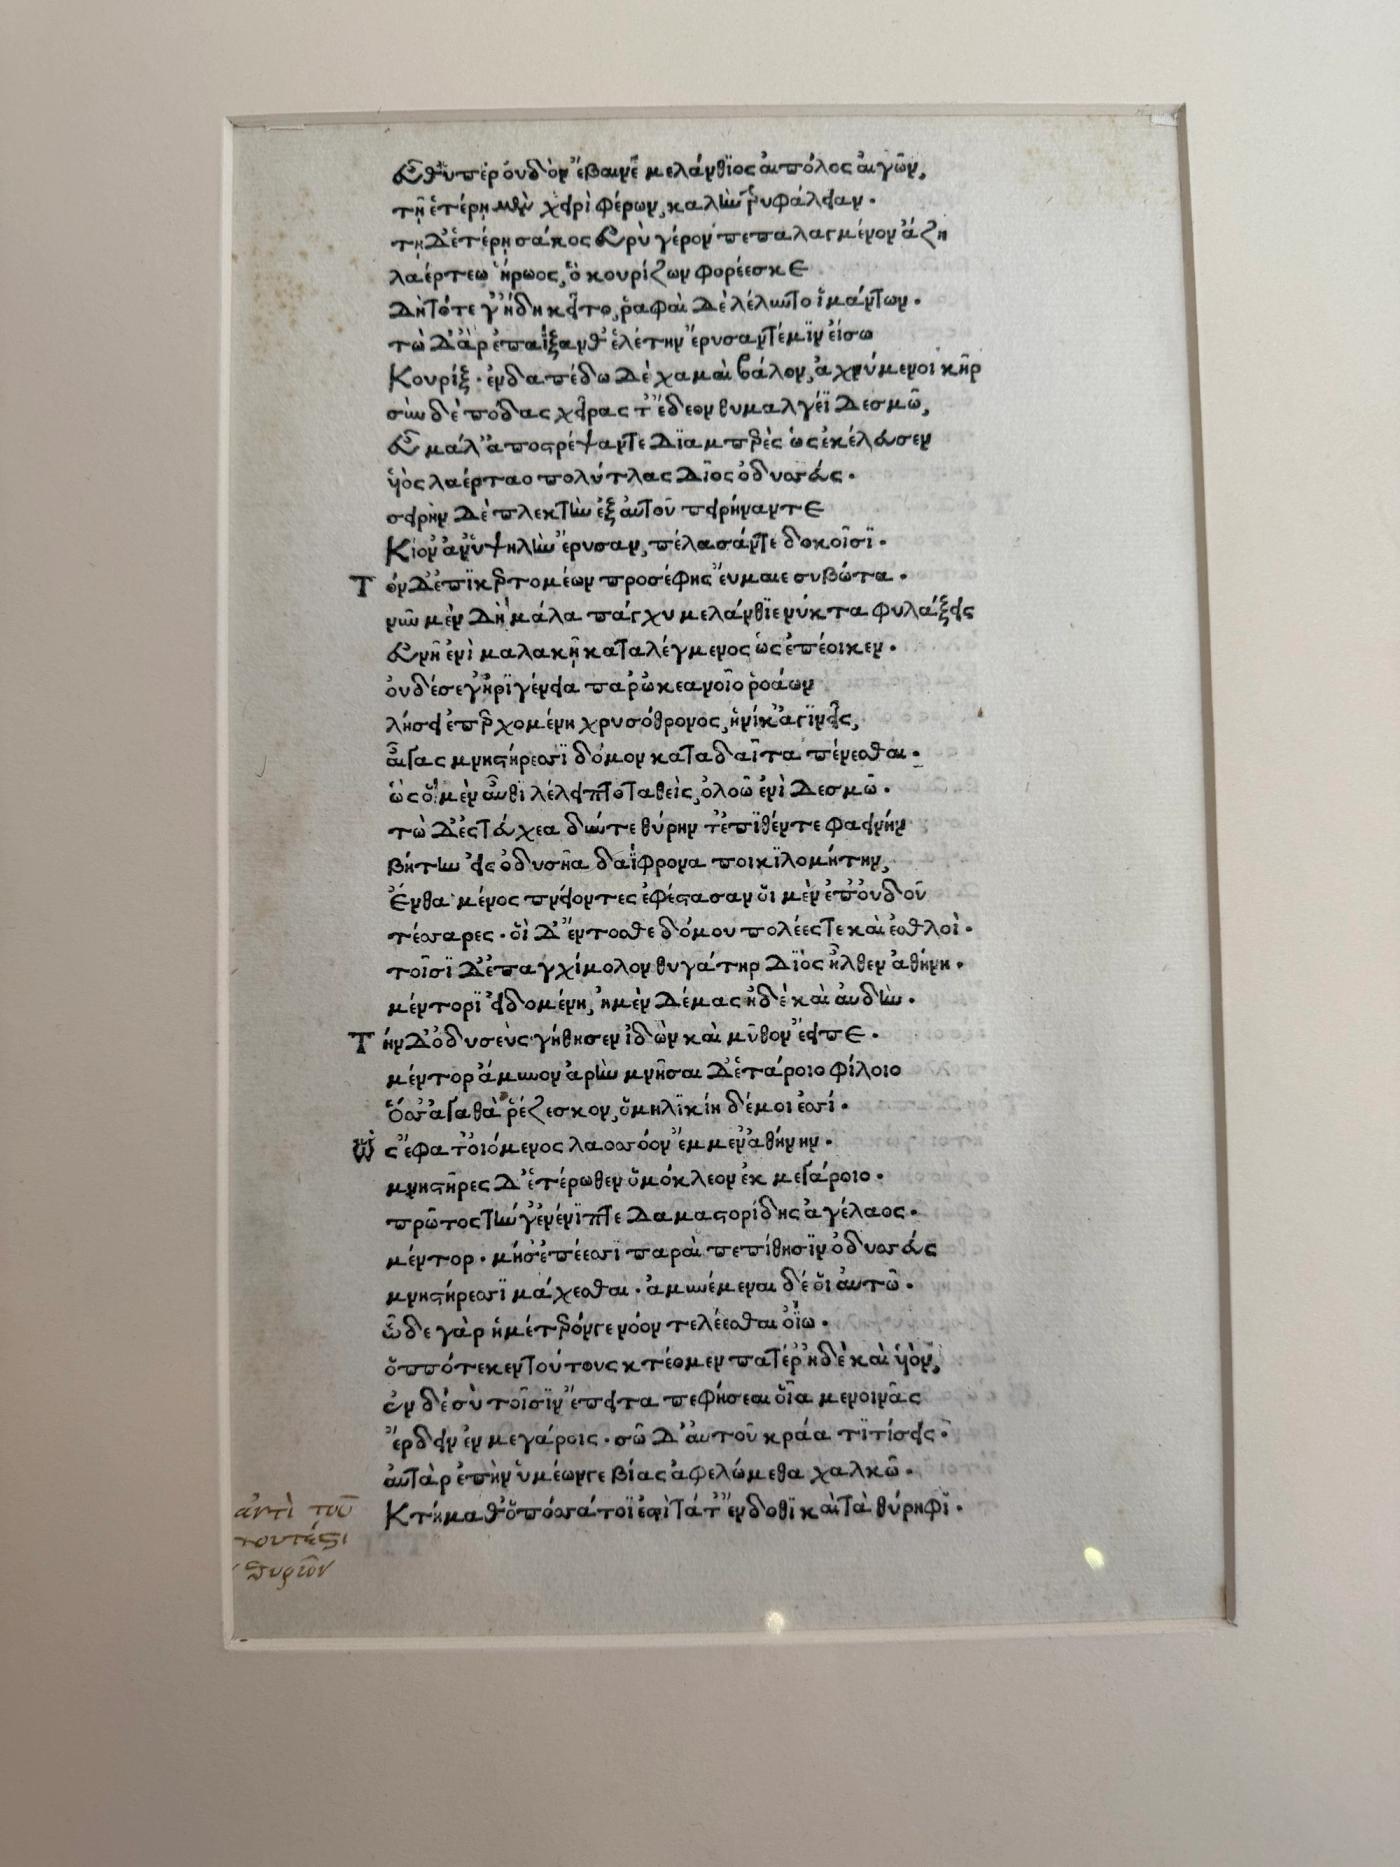 Εὖθ' ὑπὲρ ὀυδὸν ἔβαινε μελάνθϊος ἀιπόλος ἀιγῶν,
τῆ ἑτέρη μὲν χειρὶ φέρων, καλὴν τρυφάλειαν.
τῆ δ' ἑτέρη σάκος ἐυρὺ γέρον πεπαλαγμένον ἄζη
λαέρτεω ἥρωος, ὃ κουρίζων φορέεσκε
Δὴ τότε γ' ἤδη κεῖτο, ῥαφαὶ δὲ λέλυντο ἱμάντων.
τὼ δ' ἄρ ἐπαΐξανθ' ἑλέτην ἔρυσαν τέ μϊν εἴσω
Κουρίξ. ἐν δαπέδω δὲ χαμαὶ βάλον, ἀχνύμενοι κῆρ
σὺν δὲ πόδας χεῖρας τ' ἔδεον θυμαλγέϊ δεσμῶ,
Εὖ μάλ' ἀποστρέψαντε δϊαμπερὲς ὡς ἐκέλευσεν
ὑιὸς λαέρταο πολύτλας δῖος ὀδυσσεύς.
σειρὴν δὲ πλεκτὴν ἐξ ἀυτοῦ πειρήναντε
Κιον' ἀν' ὑψηλὴν ἔρυσαν, πέλασάν τε δοκοῖσϊ.
Τὸν δ' ἐπϊκερτομέων προσέφης ἔυμαιε συβῶτα.
νῦν μὲν δὴ μάλα πάγχυ μελάνθϊε νύκτα φυλάξεις
Εὐνῆ ἐνὶ μαλακῆ καταλέγμενος ὡς ἐπέοικεν.
ὀυδέ σε γ' ἠρϊγένεια παρ' ὠκεανοῖο ῥοάων
λήσει ἐπερχομένη χρυσόθρονος, ἡνίκ' ἀγϊνεῖς,
ἆιγας μνηστήρεσσϊ δόμον κατα δαῖτα πένεσθαι.
ὡς ὁ μὲν ἆυθϊ λέλειπτο ταθεὶς, ὀλοῶ ἐνὶ δεσμῶ.
τὼ δ' ἐς τέυχεα δύντε θύρην τ' ἐπϊθέντε φαεινήν
βήτην εἰς ὀδυσῆα δαΐφρονα ποικϊλομήτην,
Ἔνθα μένος πνείοντες ἐφέστασαν ὅι μὲν ἐπ' ὀυδοῦ
τέσσαρες. ὅι δ' ἔντοσθε δόμου πολέες τε καὶ ἐσθλοὶ.
τοῖσϊ δ' ἐπαγχίμολον θυγάτηρ δϊὸς ἦλθεν ἀθήνη.
μέντορϊ εἰδομένη, ἠμὲν δέμας ἠδὲ καὶ ἀυδὴν.
Τήν δ' ὀδυσεὺς γήθησεν ἰδὼν καὶ μῦθον ἔειπε.
μέντορ ἄμυνον ἀρὴν μνῆσαι δ' ἑτάροιο φίλοιο
Ὅς σ' ἀγαθὰ ῥέζεσκον, ὁμηλϊκίη δέ μοι ἐσσί.
Ὣς ἔφατ' ὀιόμενος λαοσσόον ἔμμεν ἀθήνην.
μνηστῆρες δ' ἑτέρωθεν ὁμόκλεον ἐκ μεγάροιο.
πρῶτος τὴν γ' ἐνένϊπτε δαμαστορίδης ἀγέλαος.
μέντορ. μή σ' ἐπέεσσϊ παραὶ πεπίθησϊν ὀδυσσεύς
μνηστήρεσσϊ μάχεσθαι. ἀμυνέμεναι δέ ὁι ἀυτῶ.
ὧδε γὰρ ἡμέτερόν γε νόον τελέεσθαι ὀΐω.
ὁππότε κεν τούτους κτέωμεν πατέρ' ἠδὲ καὶ ὑιὸν,
ἐν δέ σὺ τοῖσϊν ἔπειτα πεφήσεαι ὅια μενοινᾶς
ἔρδειν ἐν μεγάροις. σῶ δ' ἀυτοῦ κράα τϊτίσεις.
ἀυτὰρ ἐπὴν ὑμέων γε βίας ἀφελώμεθα χαλκῶ.
Κτήμαθ' ὁπόσσα τοί ἐστὶ τά τ' ἔνδοθϊ καὶ τὰ θύρηφϊ.
ἀντὶ τοῦ
τουτέστι